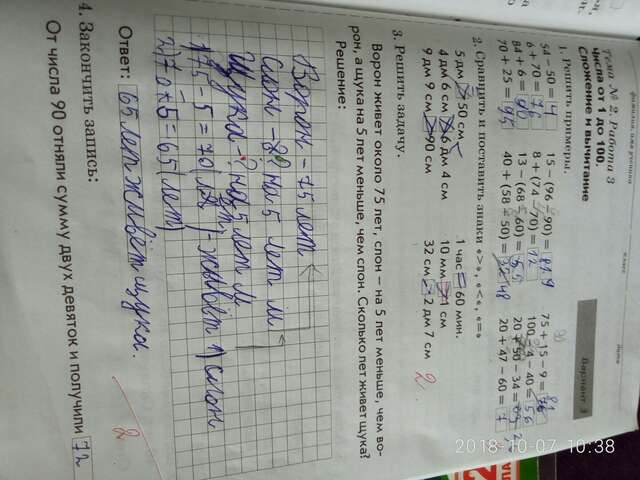 фамилия, имя ученика
класс
дата
Тема № 2. Работа 3
Вариант 3
Числа от 1 до 100.
Сложение и вычитание
1. Решить примеры.
54 − 50 = 4
6 + 70 = 76
84 + 6 = 90
70 + 25 = 95
15 − (96 − 90) = 9
8 + (74 − 70) = 12
13 − (68 − 60) = 5
40 + (58 − 50) = 48
75 + 15 − 9 = 81
100 − 4 − 40 = 56
20 + 50 − 34 =
20 + 47 − 60 = 7
2. Сравнить и поставить знаки «>», «<», «=»
5 дм = 50 см
4 дм 6 см 6 дм 4 см
9 дм 9 см > 90 см
1 час = 60 мин.
10 мм 1 см
32 см 2 дм 7 см
2
3. Решить задачу.
Ворон живет около 75 лет, слон – на 5 лет меньше, чем во-
рон, а щука на 5 лет меньше, чем слон. Сколько лет живет щука?
Решение:
Ворон – 75 лет
Слон – ? на 5 лет м
Щука – ? на 5 лет м
1) 75 − 5 = 70 (л.) живёт слон
2) 70 − 5 = 65 (лет)
Ответ: 65 лет живёт щука.
2
4. Закончить запись:
От числа 90 отняли сумму двух девяток и получили 72
2018-10-07 10:38